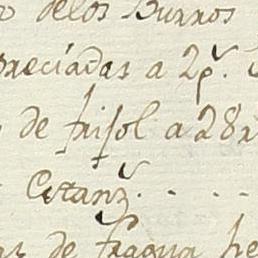 delos Burros
preciadas a 2p.^s
de frisol a 28r
Estanz.^s
de fragua